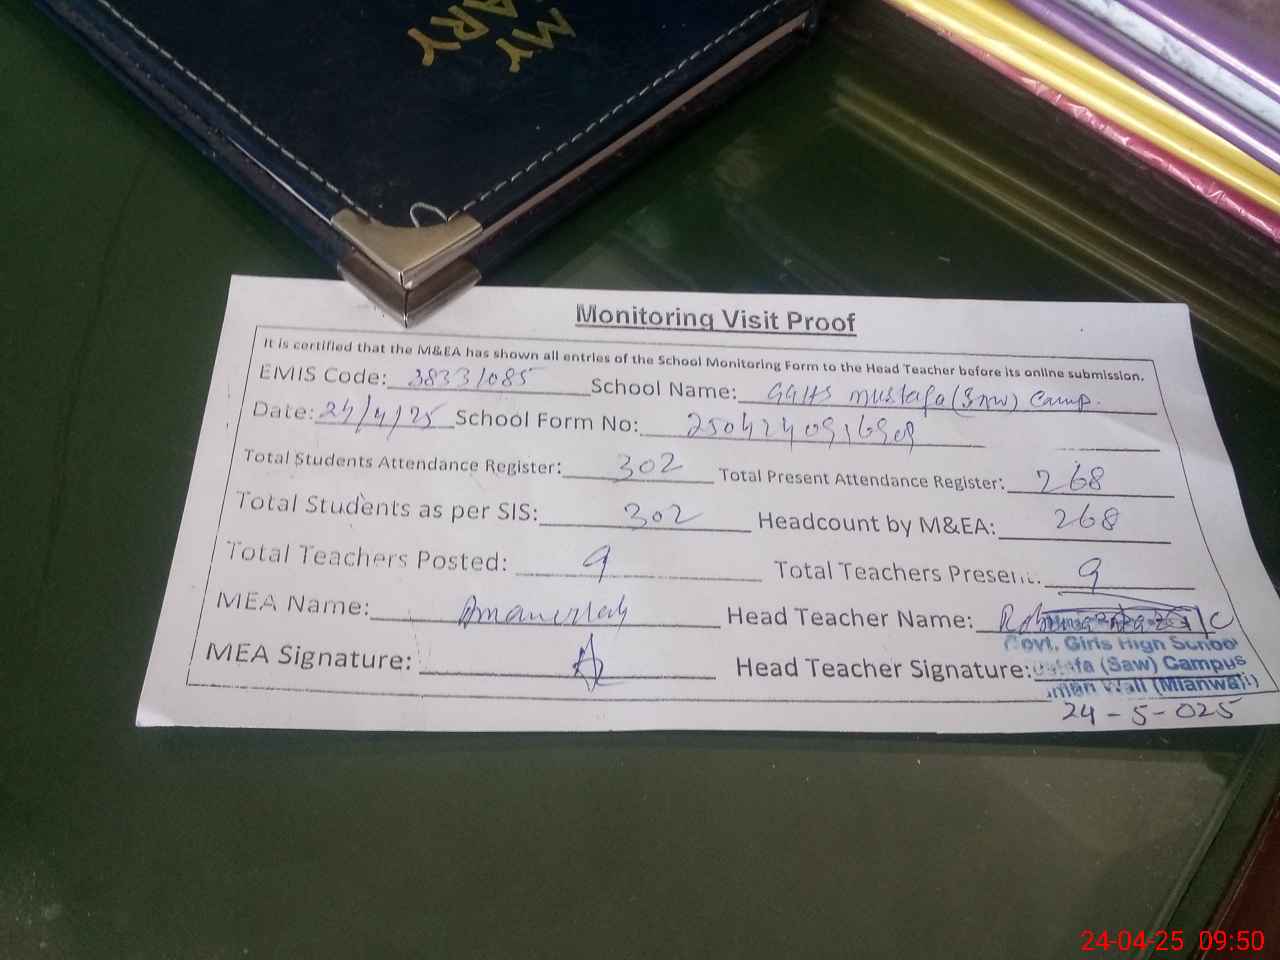 MY
DIARY
Monitoring Visit Proof
It is certified that the M&EA has shown all entries of the School Monitoring Form to the Head Teacher before its online submission.
EMIS Code: 38331085 School Name: GGHS Mustafa (Saw) Camp.
Date: 24/4/25 School Form No:
Total Students Attendance Register: 302 Total Present Attendance Register: 268
Total Students as per SIS: 302 Headcount by M&EA: 268
Total Teachers Posted: 9 Total Teachers Present: 9
MEA Name: Head Teacher Name:
Govt. Girls High School
MEA Signature: Head Teacher Signature: Mustafa (Saw) Campus
(Mianwali)
24-5-025
24-04-25 09:50